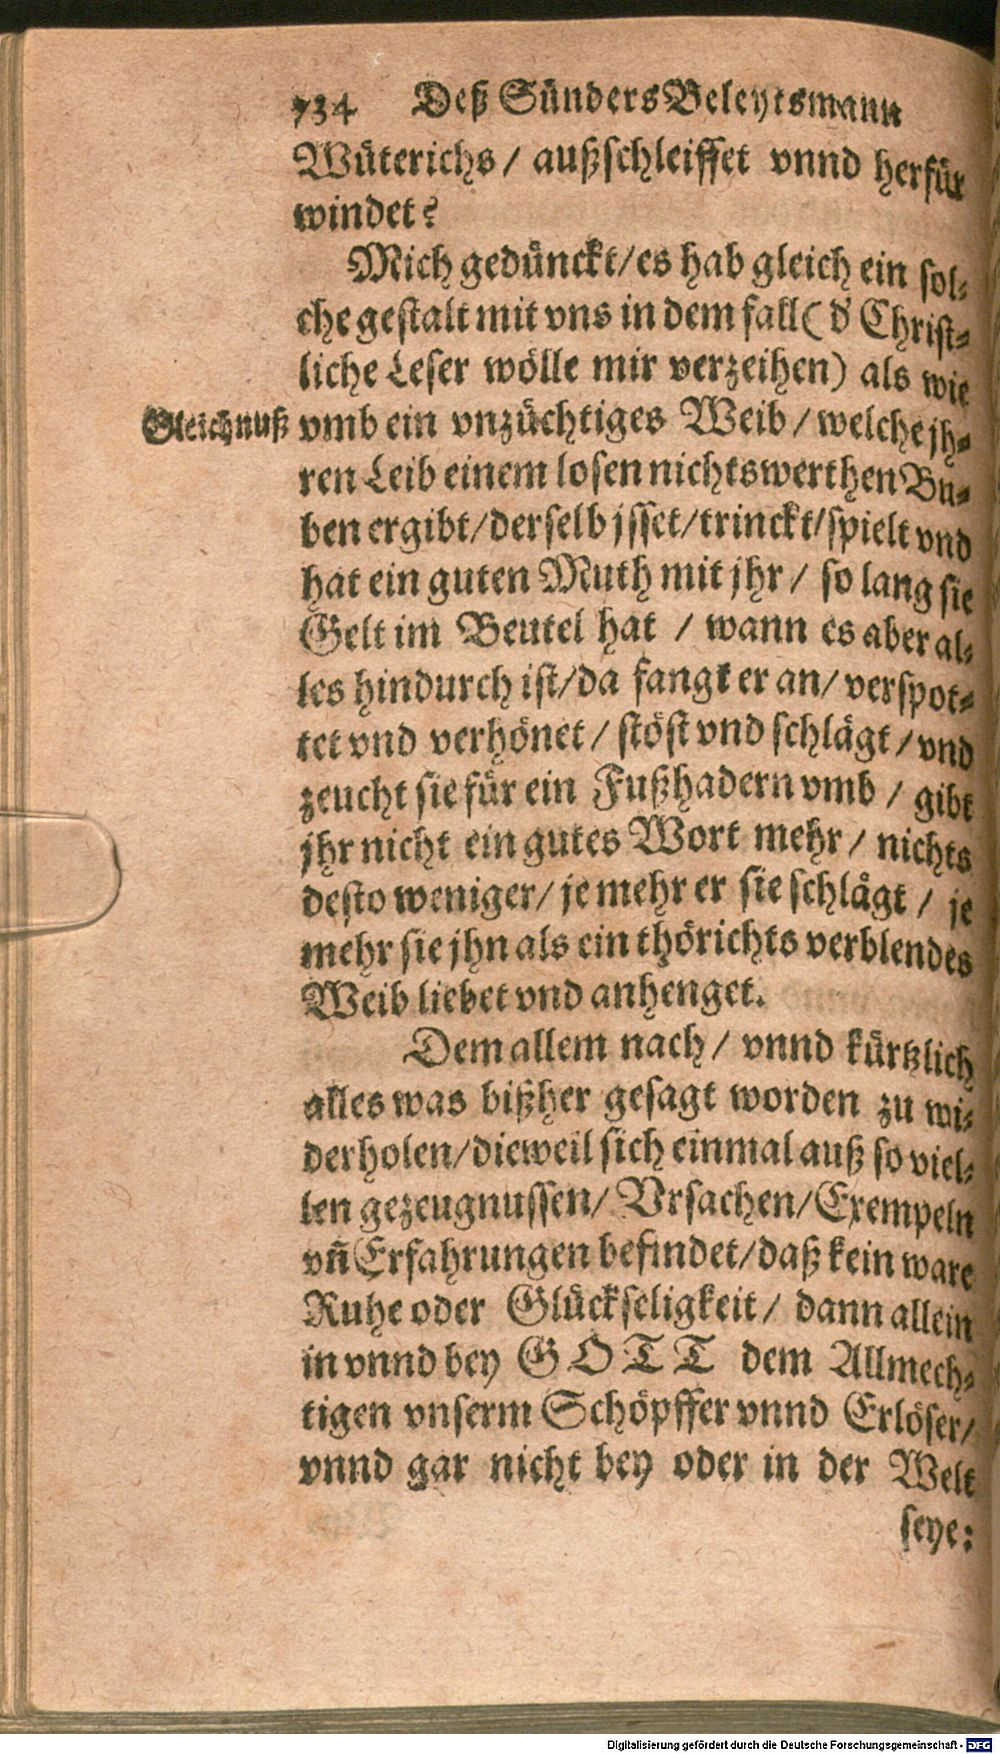 734 Deß Sünders Beleytsmann
Wüterichs / außschleiffet vnnd herfür
windet?
Mich gedünckt/es hab gleich ein sol-
che gestalt mit vns in dem fall (d' Christ-
liche Leser wölle mir verzeihen) als wie
Gleichnuß
vmb ein vnzüchtiges Weib / welche jh-
ren Leib einem losen nichtswerthen Bu-
ben ergibt/derselb jsset/trinckt/spielt vnd
hat ein guten Muth mit jhr / so lang sie
Gelt im Beutel hat / wann es aber al-
les hindurch ist/da fangt er an/ verspot-
tet vnd verhönet / stöst vnd schlägt / vnd
zeucht sie für ein Fußhadern vmb / gibt
jhr nicht ein gutes Wort mehr / nichts
desto weniger/ je mehr er sie schlägt / je
mehr sie jhn als ein thörichts verblendes
Weib liebet vnd anhenget.
Dem allem nach / vnnd kürtzlich
alles was bißher gesagt worden zu wi-
derholen/dieweil sich einmal auß so viel-
len gezeugnussen/ Vrsachen/Exempeln
vñ Erfahrungen befindet/daß kein ware
Ruhe oder Glückseligkeit / dann allein
in vnnd bey GOTT dem Allmech-
tigen vnserm Schöpffer vnnd Erlöser/
vnnd gar nicht bey oder in der Welt
seye:
Digitalisierung gefördert durch die Deutsche Forschungsgemeinschaft - DFG